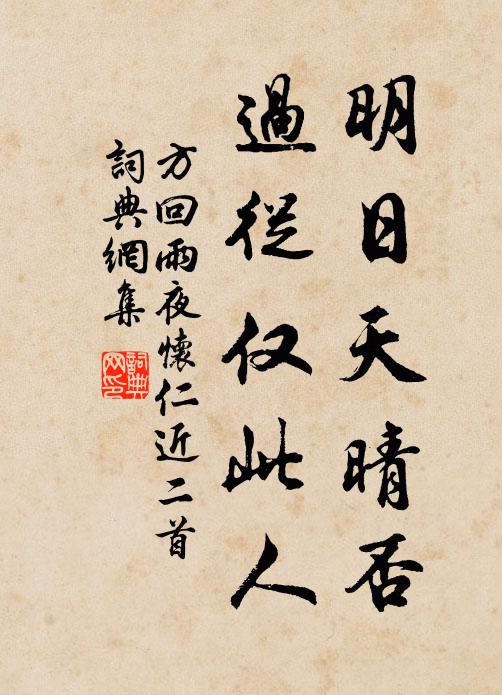 明日天晴否
過從仅此人
方回雨夜懷仁近二首
詞典網集
詞典网印